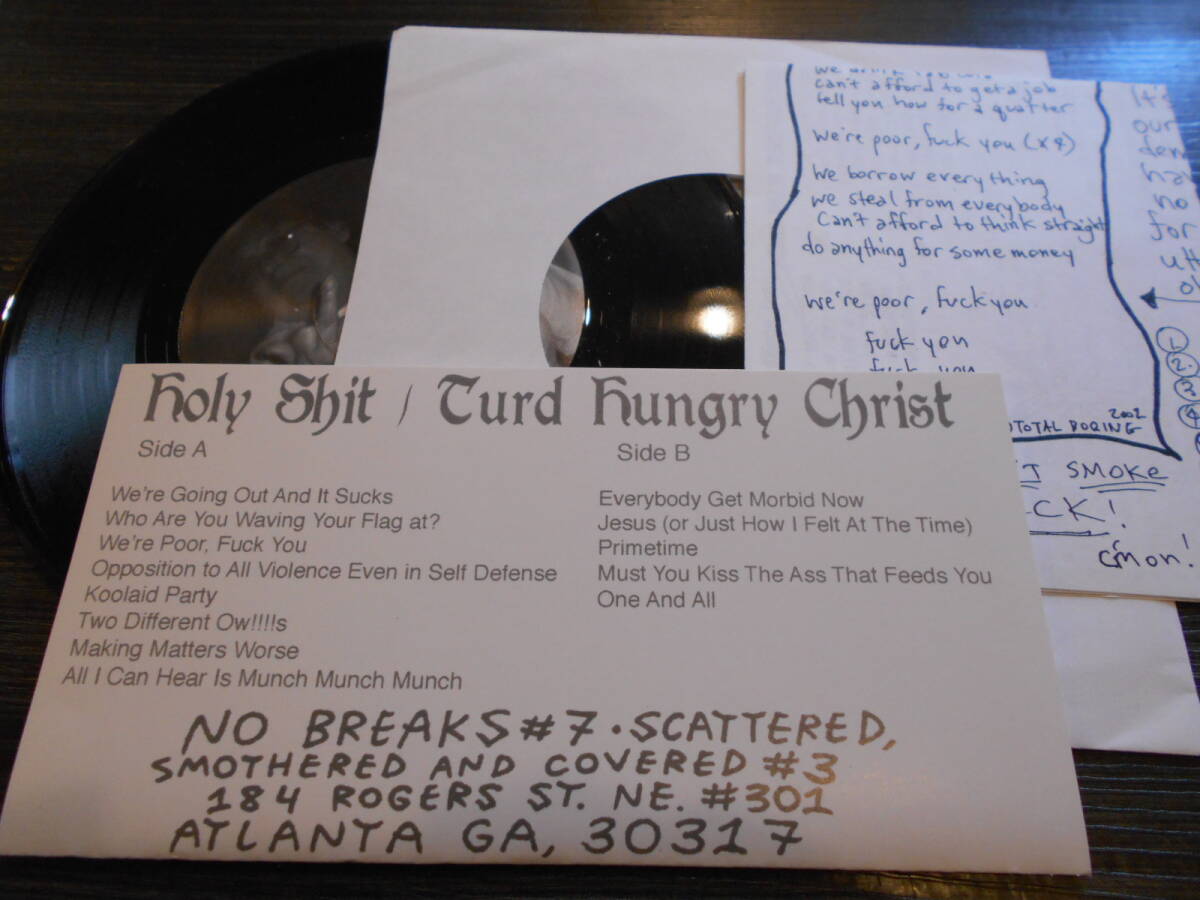 can't afford to get a job
tell you how for a quarter
we're poor, fuck you (x8)
we borrow everything
we steal from everybody
can't afford to think straight
do anything for some money
we're poor, fuck you
fuck you
fuck you
TOTAL BORING 2002
SMOKE
CK!
c'mon!
It's
our
no
for
Holy Shit / Turd Hungry Christ
Side A
We're Going Out And It Sucks
Who Are You Waving Your Flag at?
We're Poor, Fuck You
Opposition to All Violence Even in Self Defense
Koolaid Party
Two Different Ow!!!!s
Making Matters Worse
All I Can Hear Is Munch Munch Munch
Side B
Everybody Get Morbid Now
Jesus (or Just How I Felt At The Time)
Primetime
Must You Kiss The Ass That Feeds You
One And All
NO BREAKS #7 · SCATTERED,
SMOTHERED AND COVERED #3
184 ROGERS ST. NE. #301
ATLANTA GA, 30317